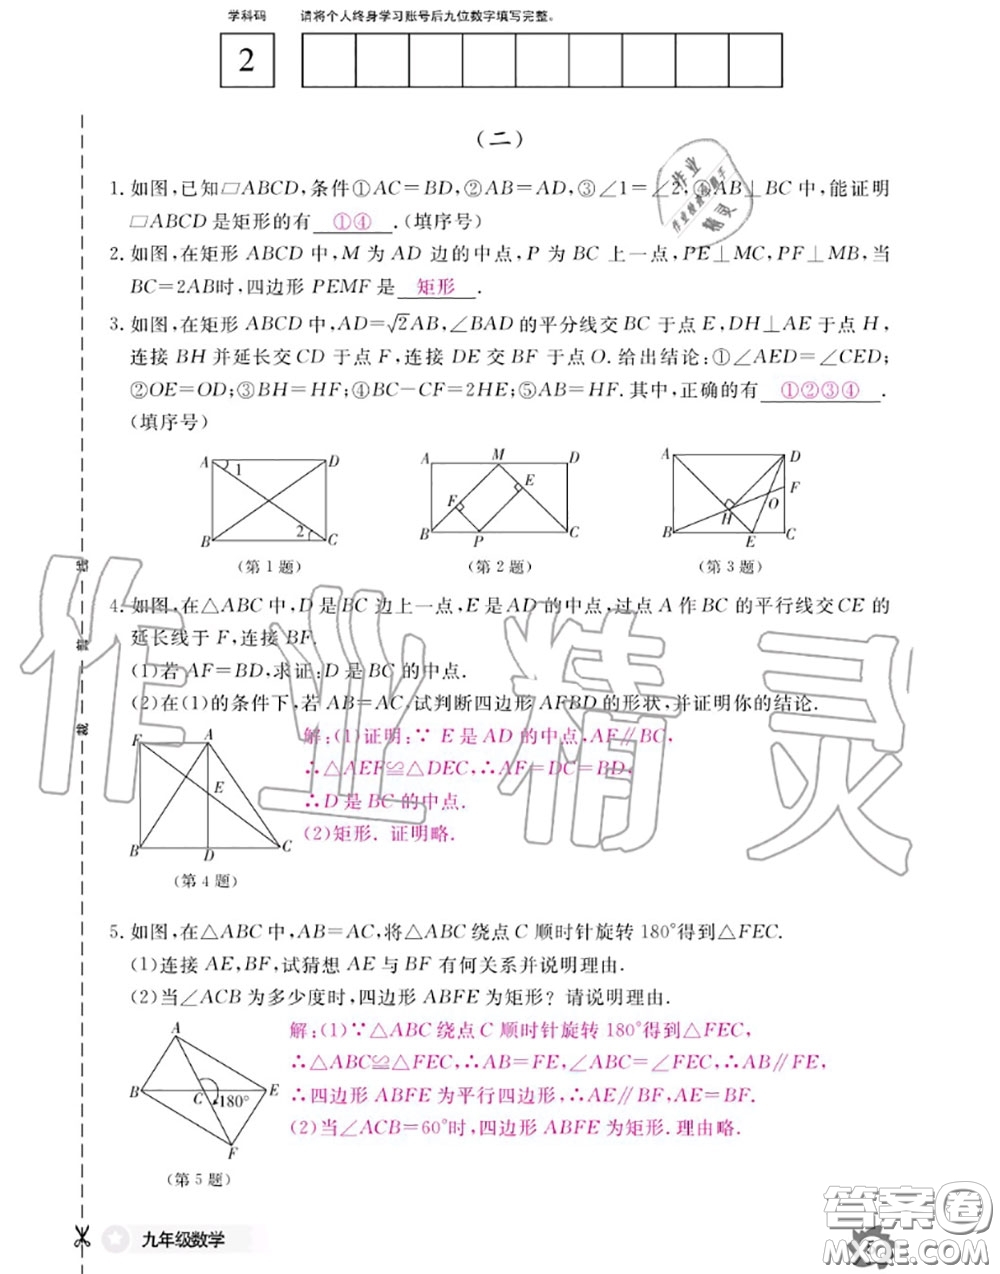 学科码 请将个人终身学习账号后九位数字填写完整。
2
(二)
1. 如图,已知▱ABCD,条件①AC=BD,②AB=AD,③∠1=∠2,④AB⊥BC中,能证明
▱ABCD是矩形的有 ①④ .(填序号)
2. 如图,在矩形 ABCD 中,M 为 AD 边的中点,P 为 BC 上一点,PE⊥MC,PF⊥MB,当
BC=2AB时,四边形 PEMF 是 矩形 .
3. 如图,在矩形 ABCD 中,AD=√2AB,∠BAD 的平分线交 BC 于点 E,DH⊥AE 于点 H,
连接 BH 并延长交 CD 于点 F,连接 DE 交 BF 于点 O. 给出结论:①∠AED=∠CED;
②OE=OD;③BH=HF;④BC-CF=2HE;⑤AB=HF. 其中,正确的有 ①②③④ .
(填序号)
A 1 D B 2 C
A M D F E B P C
A D F H O B E C
(第1题) (第2题) (第3题)
4. 如图,在△ABC 中,D 是 BC 边上一点,E 是 AD 的中点,过点 A 作 BC 的平行线交 CE 的
延长线于 F,连接 BF.
(1)若 AF=BD,求证:D 是 BC 的中点.
(2)在(1)的条件下,若 AB=AC,试判断四边形 AFBD 的形状,并证明你的结论.
F A E B D C
(第4题)
解:(1)证明:∵ E 是 AD 的中点,AF∥BC,
∴△AEF≌△DEC,∴AF=DC=BD,
∴D 是 BC 的中点.
(2)矩形. 证明略.
5. 如图,在△ABC 中,AB=AC,将△ABC 绕点 C 顺时针旋转 180°得到△FEC.
(1)连接 AE,BF,试猜想 AE 与 BF 有何关系并说明理由.
(2)当∠ACB 为多少度时,四边形 ABFE 为矩形? 请说明理由.
A B C 180° E F
(第5题)
解:(1)∵△ABC 绕点 C 顺时针旋转 180°得到△FEC,
∴△ABC≌△FEC,∴AB=FE,∠ABC=∠FEC,∴AB∥FE,
∴四边形 ABFE 为平行四边形,∴AE∥BF,AE=BF.
(2)当∠ACB=60°时,四边形 ABFE 为矩形. 理由略.
九年级数学
作业精灵
答案卷
MXQE.COM